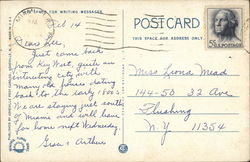 FOR WRITING MESSAGES
POSTCARD
THIS SPACE FOR ADDRESS ONLY
5¢ U.S. POSTAGE
Feb 14
Dear Lee,
Just came back
from Key West, quite an
interesting city with
many old houses dating
back to the early 1800's
We are staying just south
of Miami and will leave
for home next Wednesday.
Grace & Arthur
Miss Leona Mead
144-50 32 Ave
Flushing
N.Y. 11354